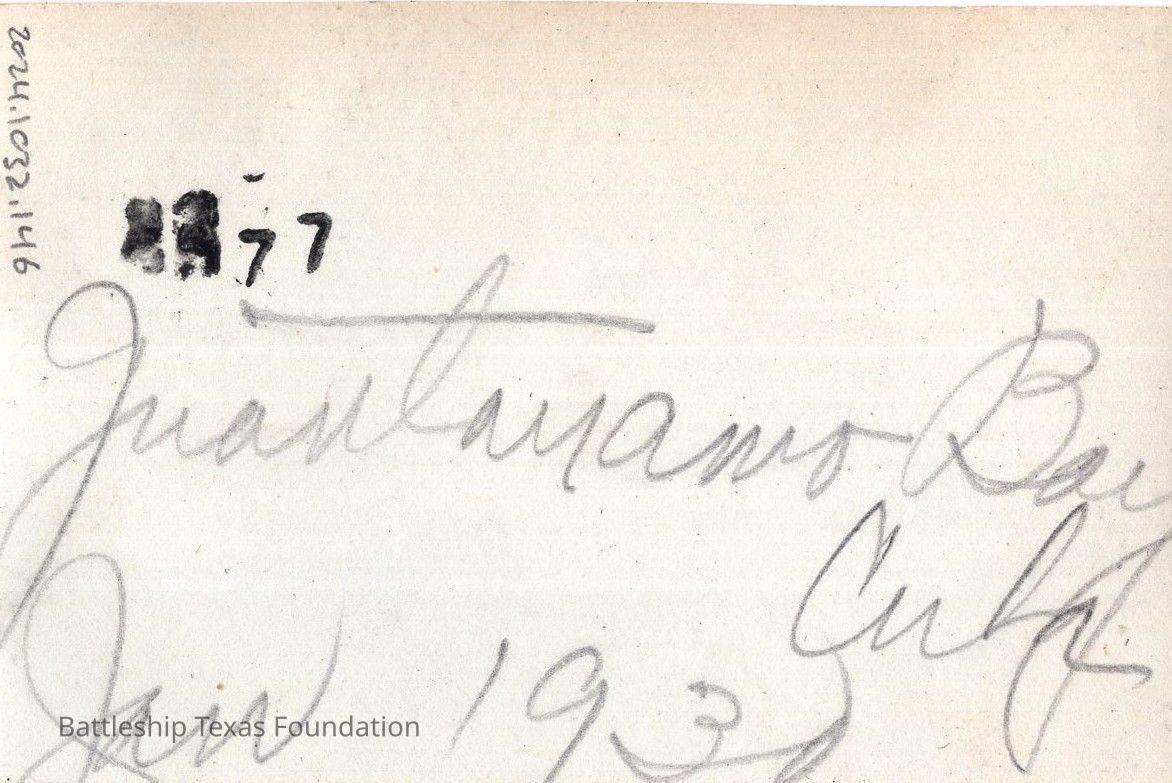 2024.1032.146
77
Guantanamo Bay
Cuba
Jan
Battleship Texas Foundation